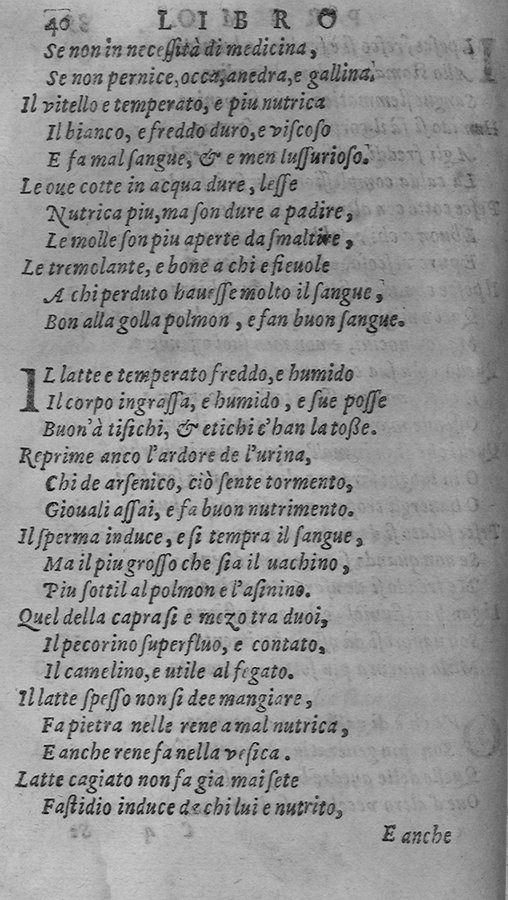 40 LIBRO
Se non in necessità di medicina,
Se non pernice, occa, anedra, e gallina.
Il vitello e temperato, e piu nutrica
Il bianco, e freddo duro, e viscoso
E fa mal sangue, & e men lussurioso.
Le oue cotte in acqua dure, lesse
Nutrica piu, ma son dure a padire,
Le molle son piu aperte da smaltire,
Le tremolante, e bone a chi e fieuole
A chi perduto hauesse molto il sangue,
Bon alla golla polmon, e fan buon sangue.
IL latte e temperato freddo, e humido
Il corpo ingrassa, e humido, e sue posse
Buon'à tisichi, & etichi c'han la tosse.
Reprime anco l'ardore de l'urina,
Chi de arsenico, ciò sente tormento,
Giouali assai, e fa buon nutrimento.
Il sperma induce, e si tempra il sangue,
Ma il piu grosso che sia il uachino,
Piu sottil al polmon e l'asinino.
Quel della capra si e mezo tra duoi,
Il pecorino superfluo, e contato,
Il camelino, e utile al fegato.
Il latte spesso non si dee mangiare,
Fa pietra nelle rene a mal nutrica,
E anche rene fa nella vesica.
Latte cagiato non fa gia mai sete
Fastidio induce de chi lui e nutrito,
E anche